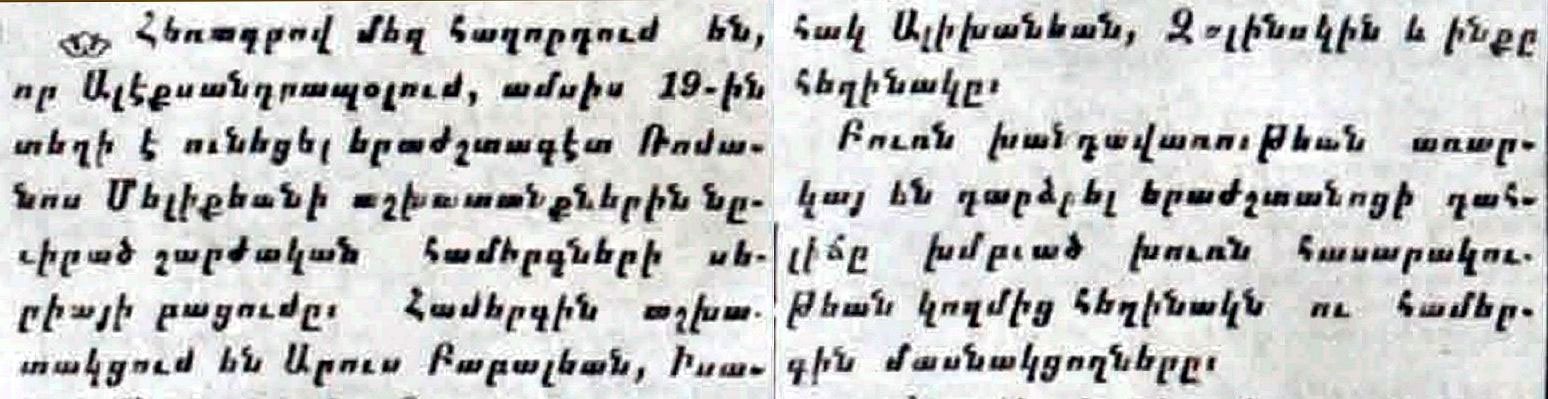 Հեռագրով մեզ հաղորդում են,
որ Ալէքսանդրապօլում, ամսիս 19-ին
տեղի է ունեցել երաժշտագէտ Ռոմա-
նոս Մելիքեանի աշխատանքներին նը-
ւիրած շարժական համերգների սե-
րիայի բացումը։ Համերգին աշխա-
տակցում են Արուս Բաբալեան, Իսա-
հակ Ալիխանեան, Զօլինսկին և ինքը
հեղինակը։
Բուռն խանդավառութեան առար-
կայ են դարձրել երաժշտանոցի դահ-
լիճը խմբւած խուռն հասարակու-
թեան կողմից հեղինակն ու համեր-
գին մասնակցողները։